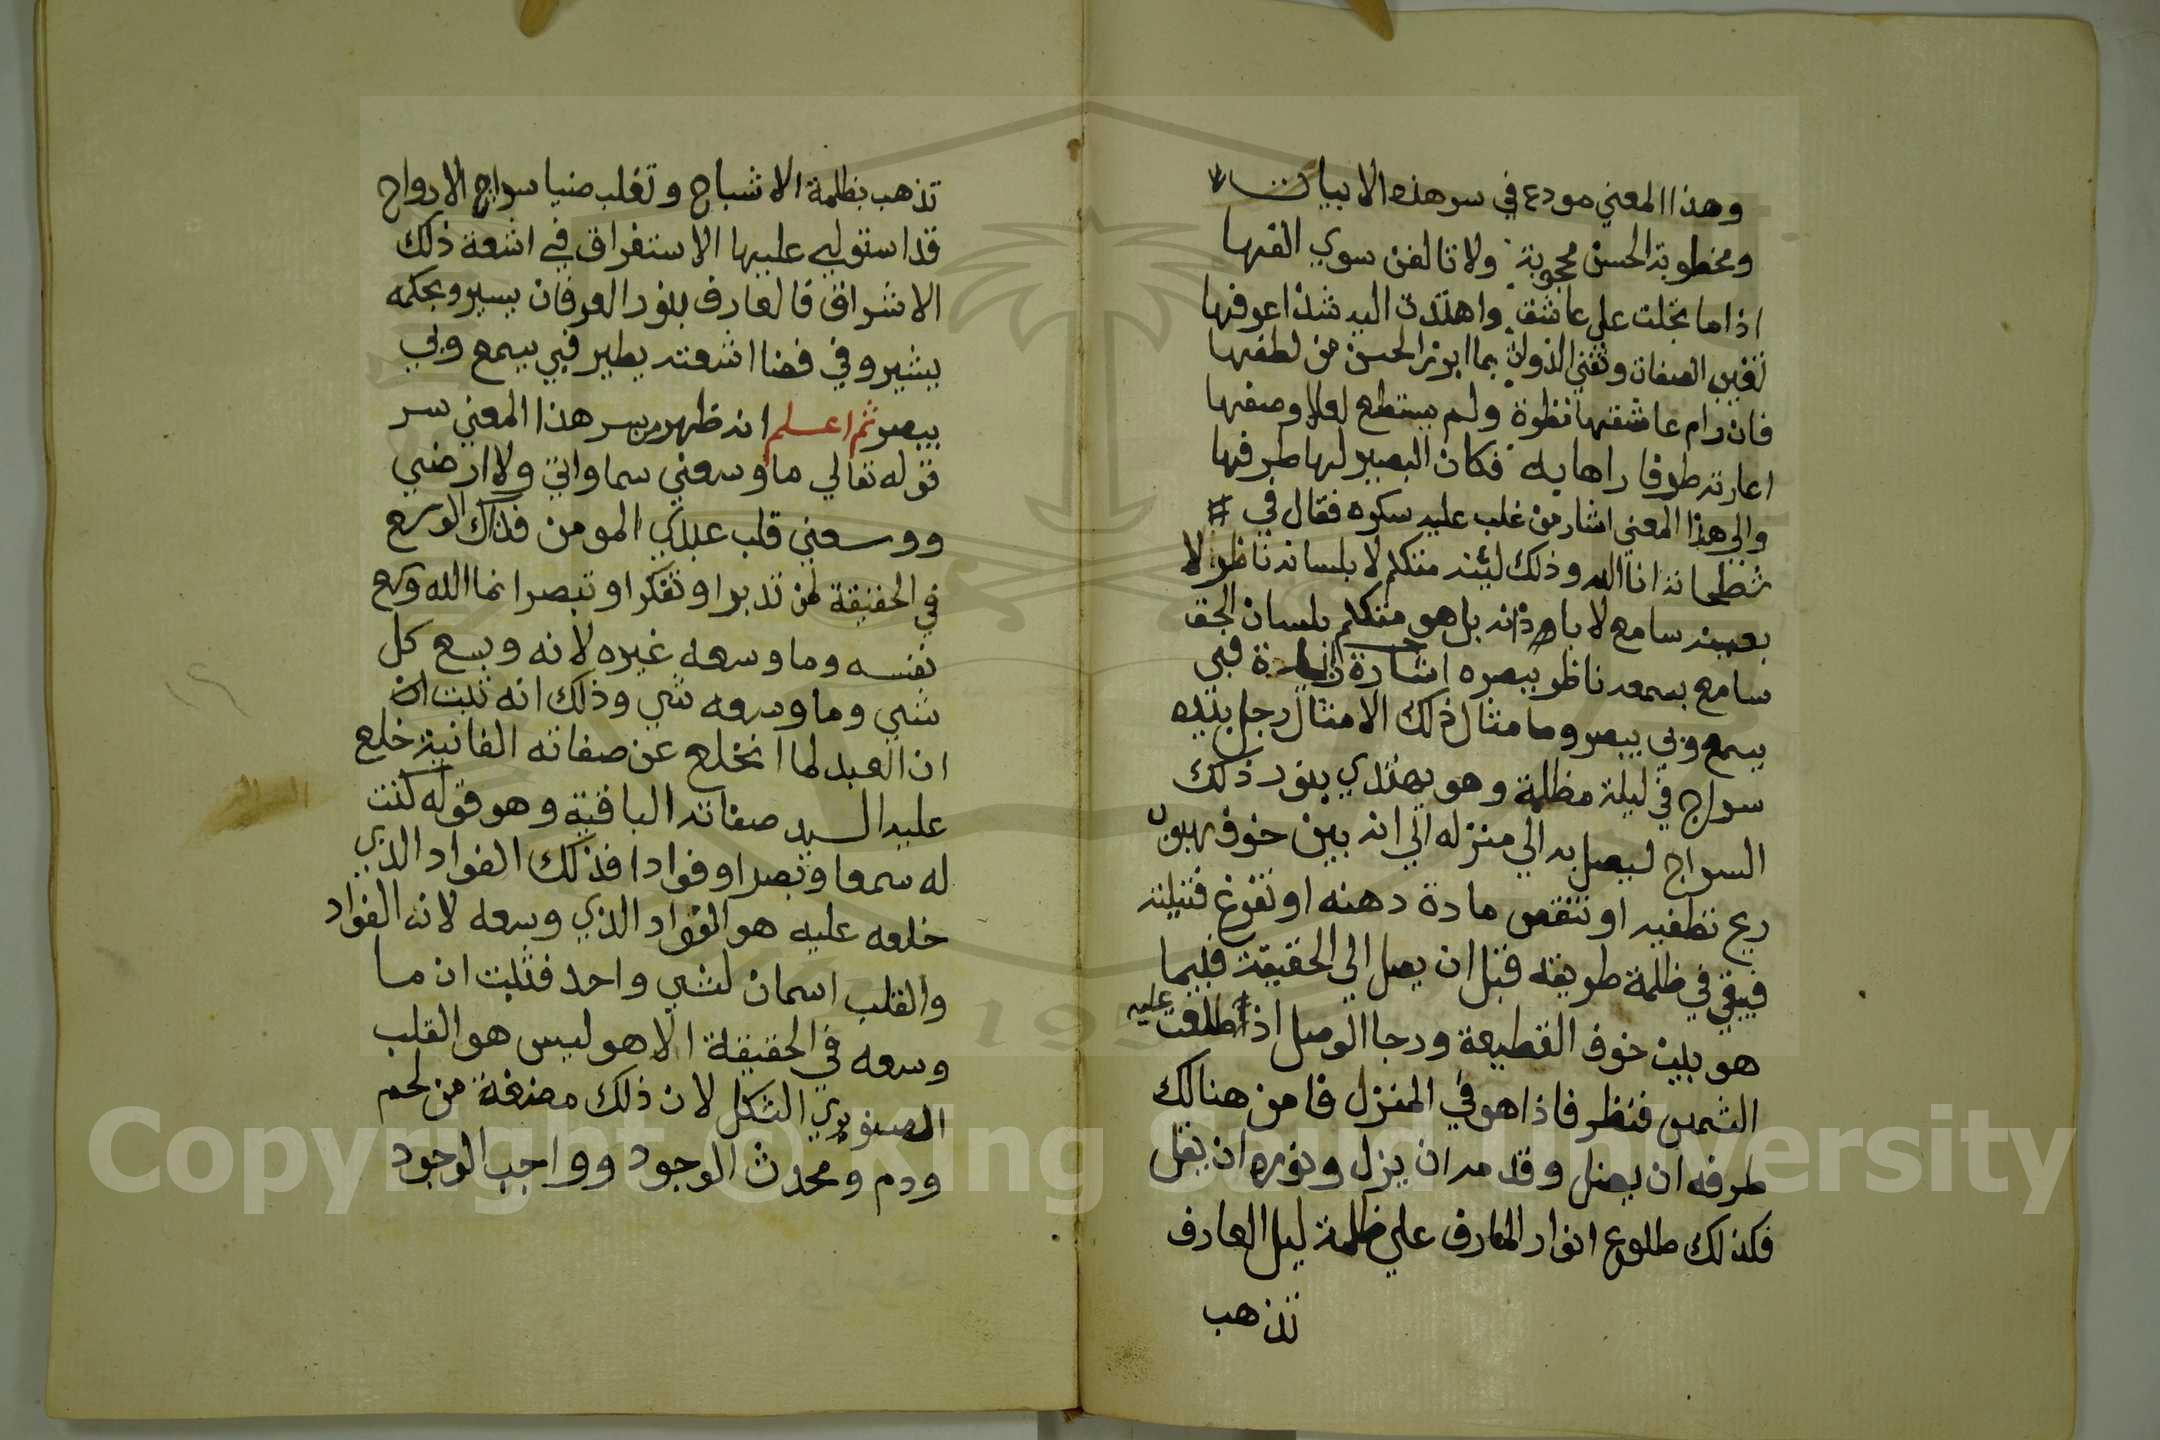 وهذا المعني مودع في سر هذه الابيات
ومخطوبة الحسن محجوبة ولا تالفن سوي الفها
اذا ما تجلت علي عاشق واهتدت اليه شذا عرفها
تغيب الصفات وتفني الذوات بما ابرز الحسن من لطفها
فان رام عاشقها نظرة ولم يستطع لعلا وصفها
اعارته طرفا راها به فكان البصير لها طرفها
والي هذا المعني اشار من غلب عليه سكره فقال في
شطحاته انا الله وذلك لئنه متكلم لا بلسانه ناظر لا
بعينه سامع لا باذنه بل هو متكلم بلسان الحق
سامع بسمعه ناظر ببصره اشارة فبي
يسمع وبي يبصر وما مثال ذلك الا مثال رجل بيده
سراج في ليلة مظلمة وهو يهتدي بنور ذلك
السراج ليصل به الي منزله الي انه بين خوف هبوب
ريح تطفيه او تنقص مادة دهنه او تفرغ فتيلته
فيبقي في ظلمة طريقه قبل ان يصل الي الحقيقة فبيما
هو بين خوف القطيعة ورجا الوصل اذ طلعت عليه
الشمس فنظر فاذا هو في المنزل فامن هنالك
طرفه ان يضل وقدمه ان يزل ونوره ان يقل
فكذلك طلوع انوار المعارف علي ظلمة ليل العارف
تذهب
تذهب بظلمة الاشباح وتغلب ضيا سراج الارواح
قد استولي عليها الاستغراق في اشعة ذلك
الاشراق فالعارف بنور العرفان يسير وبحكمه
يشير وفي فضا اشعته يطير فبي يسمع وبي
يبصر ثم اعلم انه ظهر من سر هذا المعني سر
قوله تعالي ما وسعني سماواتي ولا ارضي
ووسعني قلب عبدي المومن فذاك الوسع
في الحقيقة لمن تدبر او تفكر او تبصر انما الله وسع
نفسه وما وسعه غيره لانه وسع كل
شي وما وسعه شي وذلك انه ثبت ان
ان العبد لما انخلع عن صفاته الفانية خلع
عليه السيد صفاته الباقية وهو قوله كنت
له سمعا وبصرا وفوادا فذلك الفواد الذي
خلعه عليه هو الفواد الذي وسعه لانه الفواد
والقلب اسمان لشي واحد فثبت ان ما
وسعه في الحقيقة الا هو ليس هو القلب
الصنوبري الشكل لان ذلك مضغة من لحم
ودم ومحدث الوجود وواجب الوجود
Copyright © King Saud University